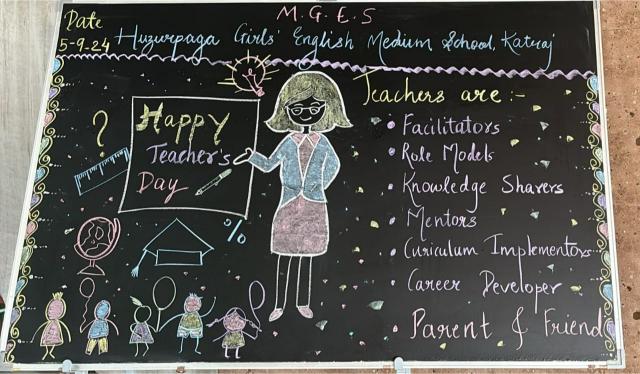 M.G.E.S
Date
5-9-24
Huzurpaga Girls' English Medium School, Katraj
Happy
Teacher's
Day
?
%
Teachers are :-
• Facilitators
• Role Models
• Knowledge Sharers
• Mentors
• Curiculum Implementors
• Career Developer
Parent & Friend